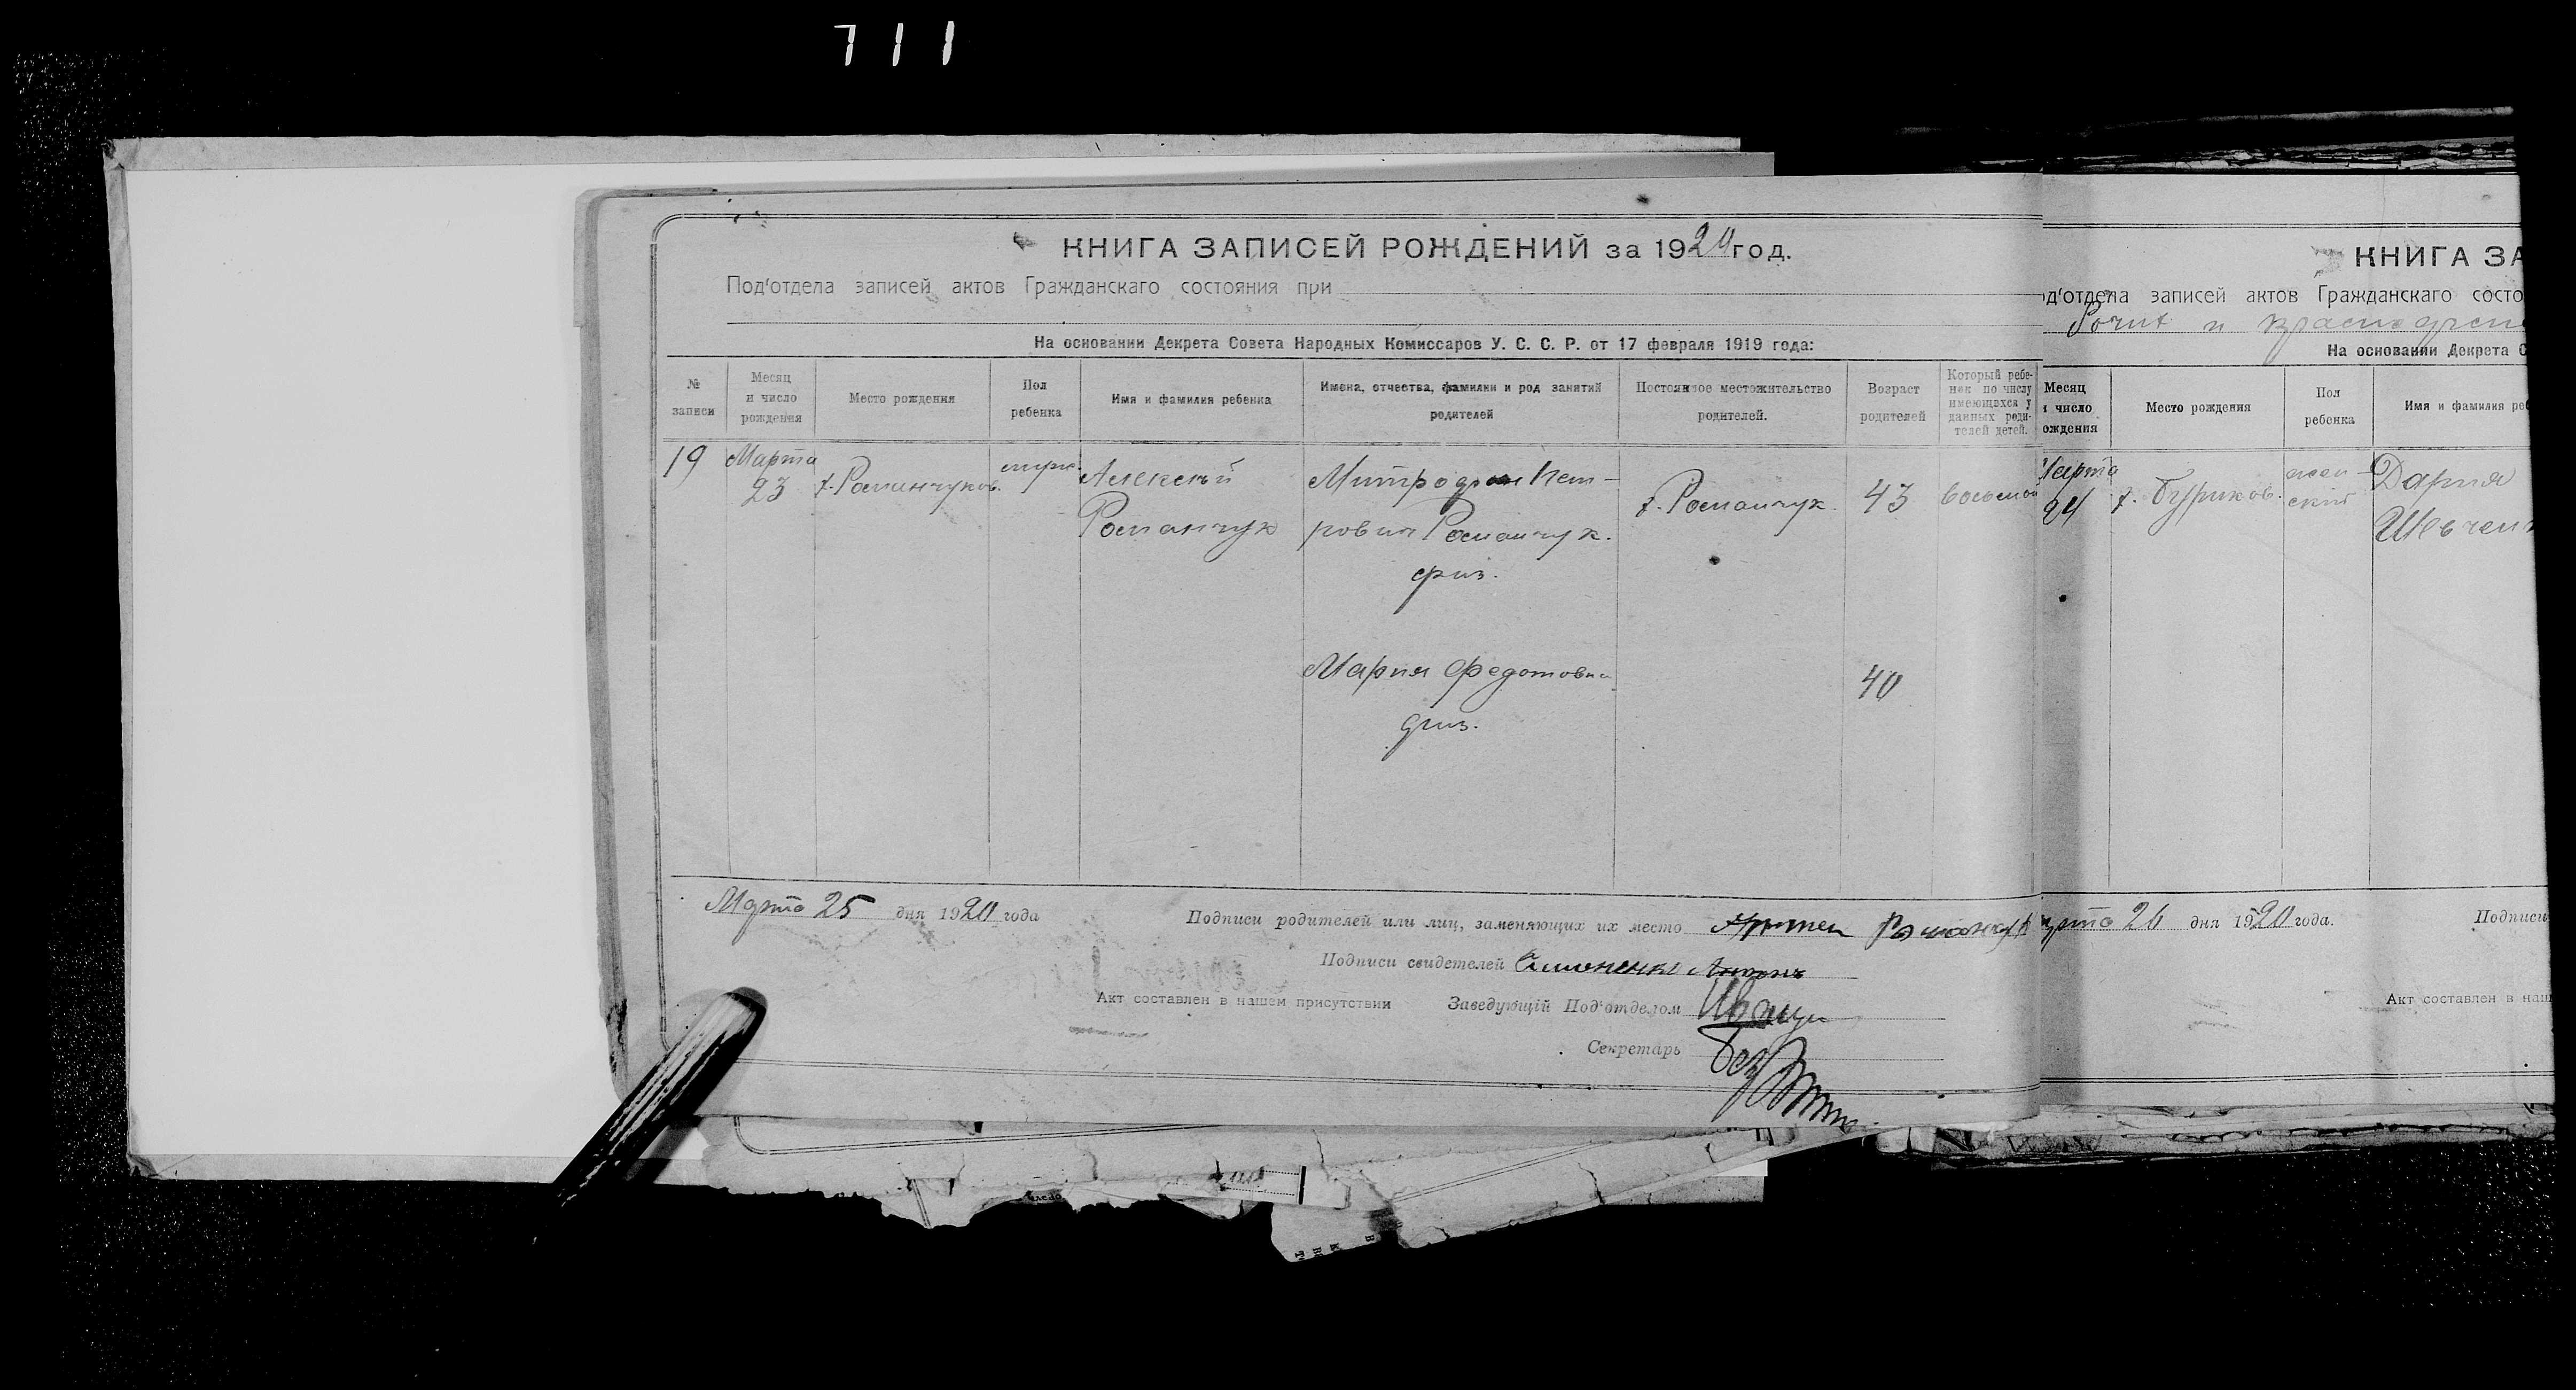 711
КНИГА ЗАПИСЕЙ РОЖДЕНИЙ за 1920 год.
Под'отдела записей актов Гражданскаго состояния при
На основании Декрета Совета Народных Комиссаров У. С. С. Р. от 17 февраля 1919 года:
№ записи
Месяц и число рождения
Место рождения
Пол ребенка
Имя и фамилия ребенка
Имена, отчества, фамилии и род занятий родителей
Постоянное местожительство родителей.
Возраст родителей
Который ребенок по числу имеющихся у данных родителей детей.
19
Марта
23
х. Романчуков.
муж.
Алексей
Романчук
Митрофан Пет-
рович Романчук.
физ.
х. Романчук.
43
восьмой
Мария Федотовна
физ.
40
Марта 25 дня 1920 года
Подписи родителей или лиц, заменяющих их место Романчук
Подписи свидетелей Симоненко Антонъ
Акт составлен в нашем присутствии Заведующій Под'отделом
Секретарь
КНИГА ЗА
д'отдела записей актов Гражданскаго состо
На основании Декрета С
Месяц
и число
ождения
Место рождения
Пол ребенка
Имя и фамилия реб
Марта
24
х. Буриков.
жен-
ский
Дария
Шевченк
арта 26 дня 1920 года.
Подписи
Акт составлен в наш